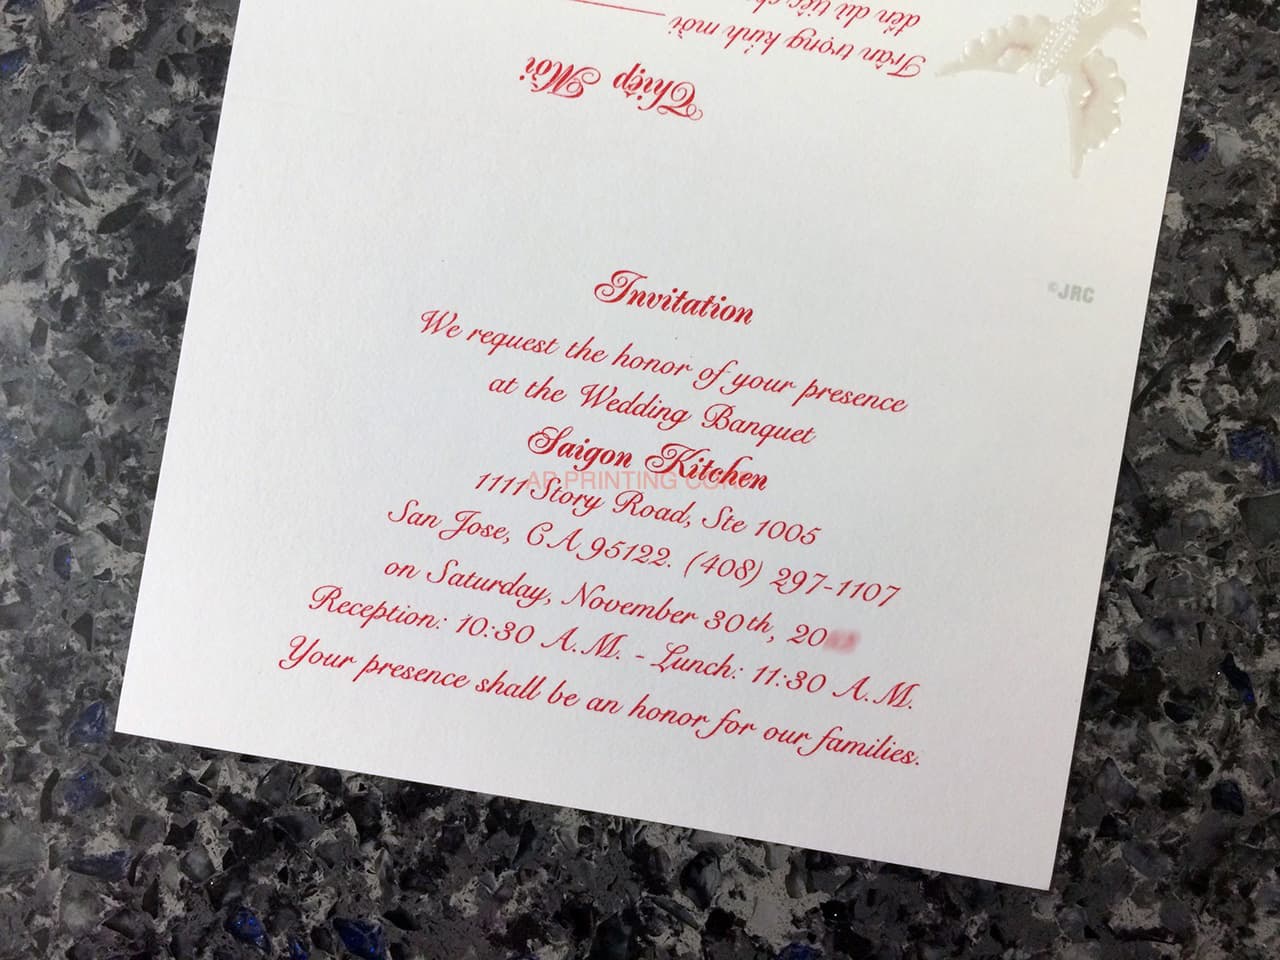 đến dự tiệc
Trân trọng kính mời
Thiệp Mời
©JRC
Invitation
We request the honor of your presence
at the Wedding Banquet
Saigon Kitchen
AP PRINTING
1111 Story Road, Ste 1005
San Jose, CA 95122. (408) 297-1107
on Saturday, November 30th, 20
Reception: 10:30 A.M. - Lunch: 11:30 A.M.
Your presence shall be an honor for our families.